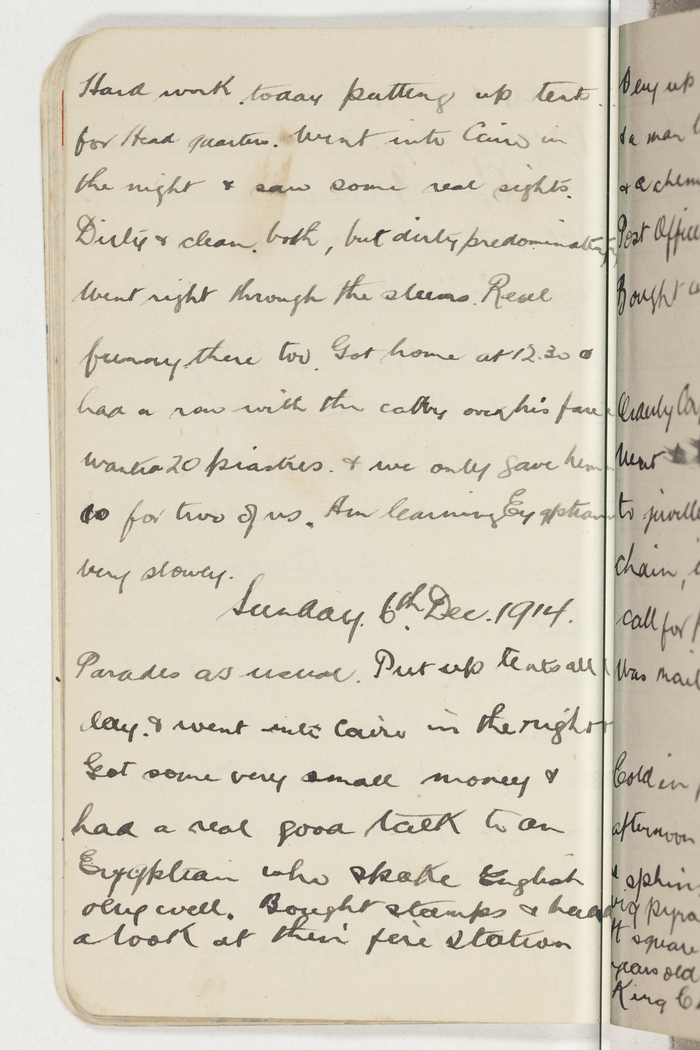 Hard work today putting up tent
for Head quarters. Went into Cairo in
the night & saw some real sights.
Dirty & clean, both, but dirty predominating
Went right through the slums. Real
funny there too. Got home at 12.30 &
had a row with the cabby over his fare
wanted 20 piastres. & we only gave him
10 for two of us. Am learning Eygptian
very slowly.
Sunday. 6th Dec. 1914.
Parades as usual. Put up tents all
day. & went into Cairo in the night
Got some very small money &
had a real good talk to an
Eygptian who spoke English
very well. Bought stamps & had
a look at their fire station
up
& a man
& a chem
Post Office
Bought
Orderly
Went
to
chain,
call for
Was
Cold in
afternoon
sphin
pyra
square
years old
King